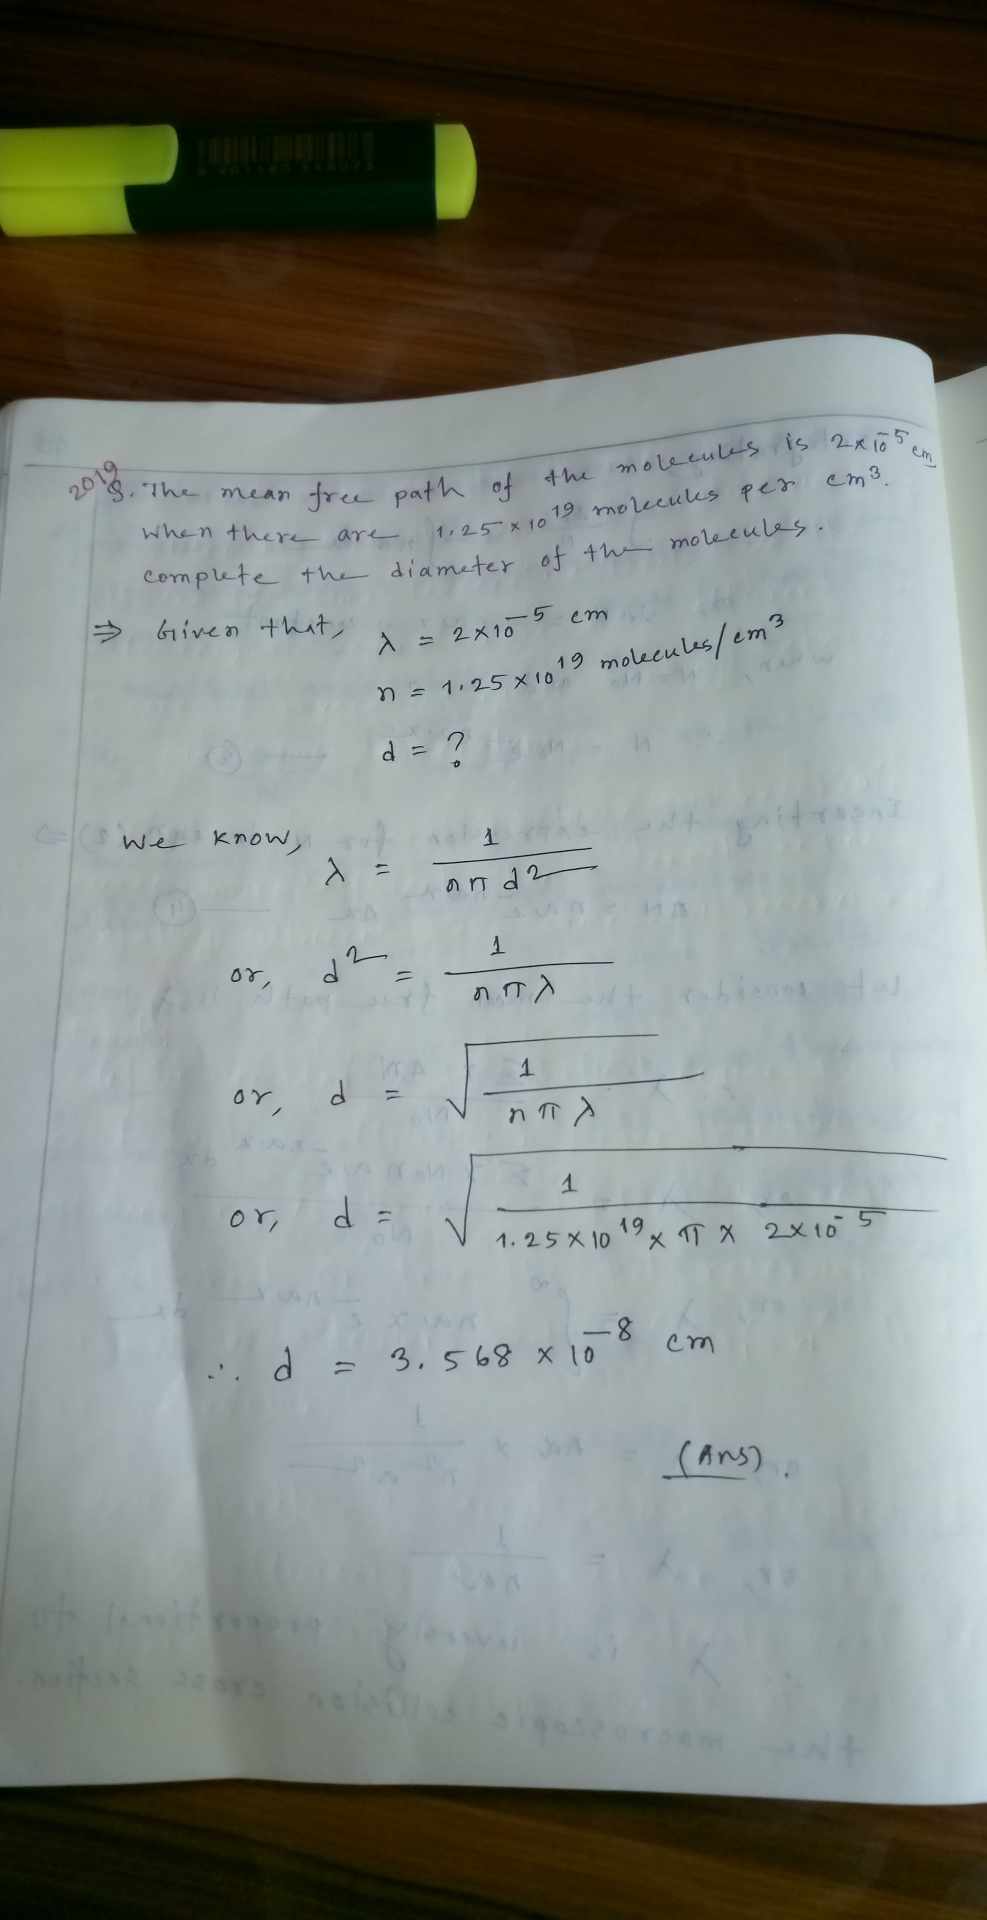 2019
Q. The mean free path of the molecules is 2×10⁻⁵ cm
when there are 1.25×10¹⁹ molecules per cm³.
complete the diameter of the molecules.
⇒ Given that, λ = 2×10⁻⁵ cm
n = 1.25×10¹⁹ molecules/cm³
d = ?
We know, λ = 1/(nπd²)
or, d² = 1/(nπλ)
or, d = √(1/(nπλ))
or, d = √(1/(1.25×10¹⁹ × π × 2×10⁻⁵))
∴ d = 3.568 × 10⁻⁸ cm
(Ans).